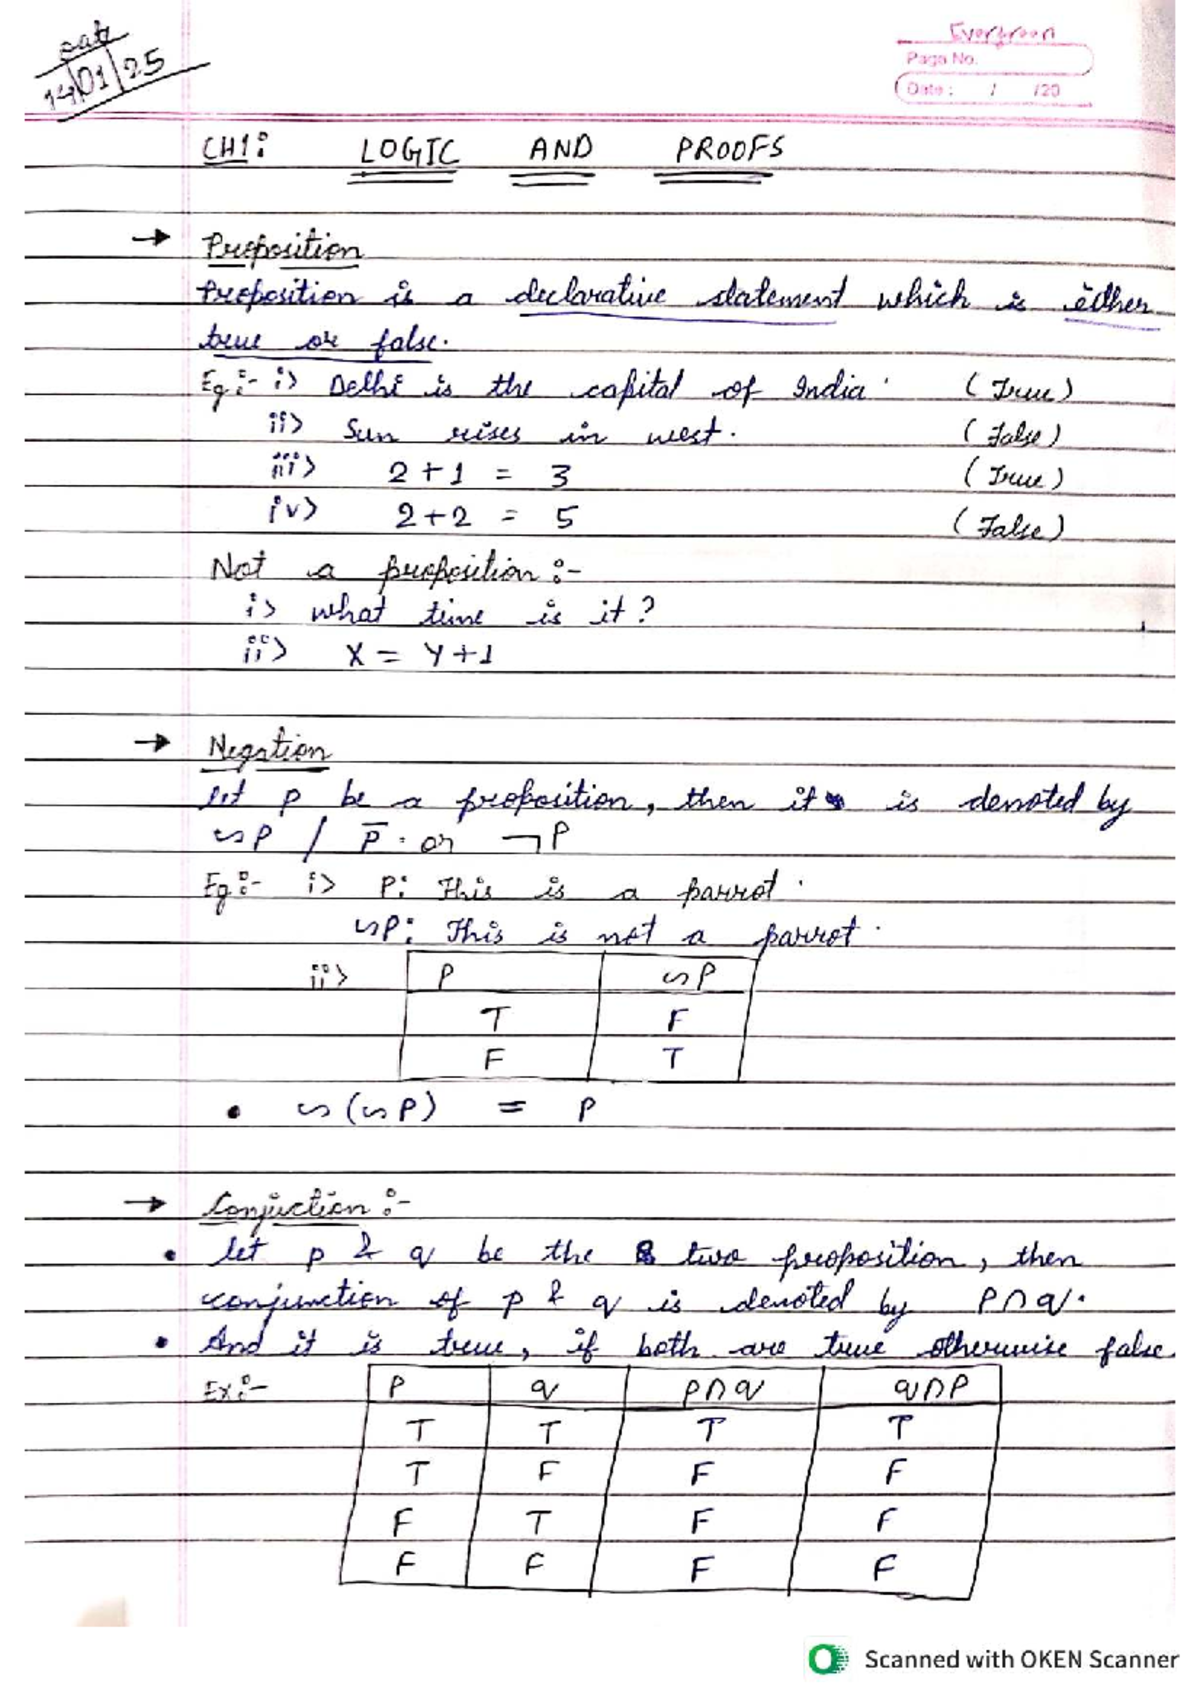 Date
14/01/25
Evergreen
Page No.
Date : / /20
CH1: LOGIC AND PROOFS
→ Proposition
Proposition is a declarative statement which is either
true or false.
Eg:- i> Delhi is the capital of India. (True)
ii> Sun rises in west. (False)
iii> 2+1 = 3 (True)
iv> 2+2 = 5 (False)
Not a proposition :-
i> what time is it?
ii> X = Y+1
→ Negation
let p be a proposition, then it is denoted by
∽P / p̅ . or ¬P
Eg:- i> P: This is a parrot.
∽P: This is not a parrot.
ii> P ∽P
T F
F T
• ∽(∽P) = P
→ Conjuction :-
• let p & q be the two proposition, then
conjunction of p & q is denoted by P∩q.
• And it is true, if both are true otherwise false.
Ex:- P q P∩q q∩P
T T T T
T F F F
F T F F
F F F F
Scanned with OKEN Scanner